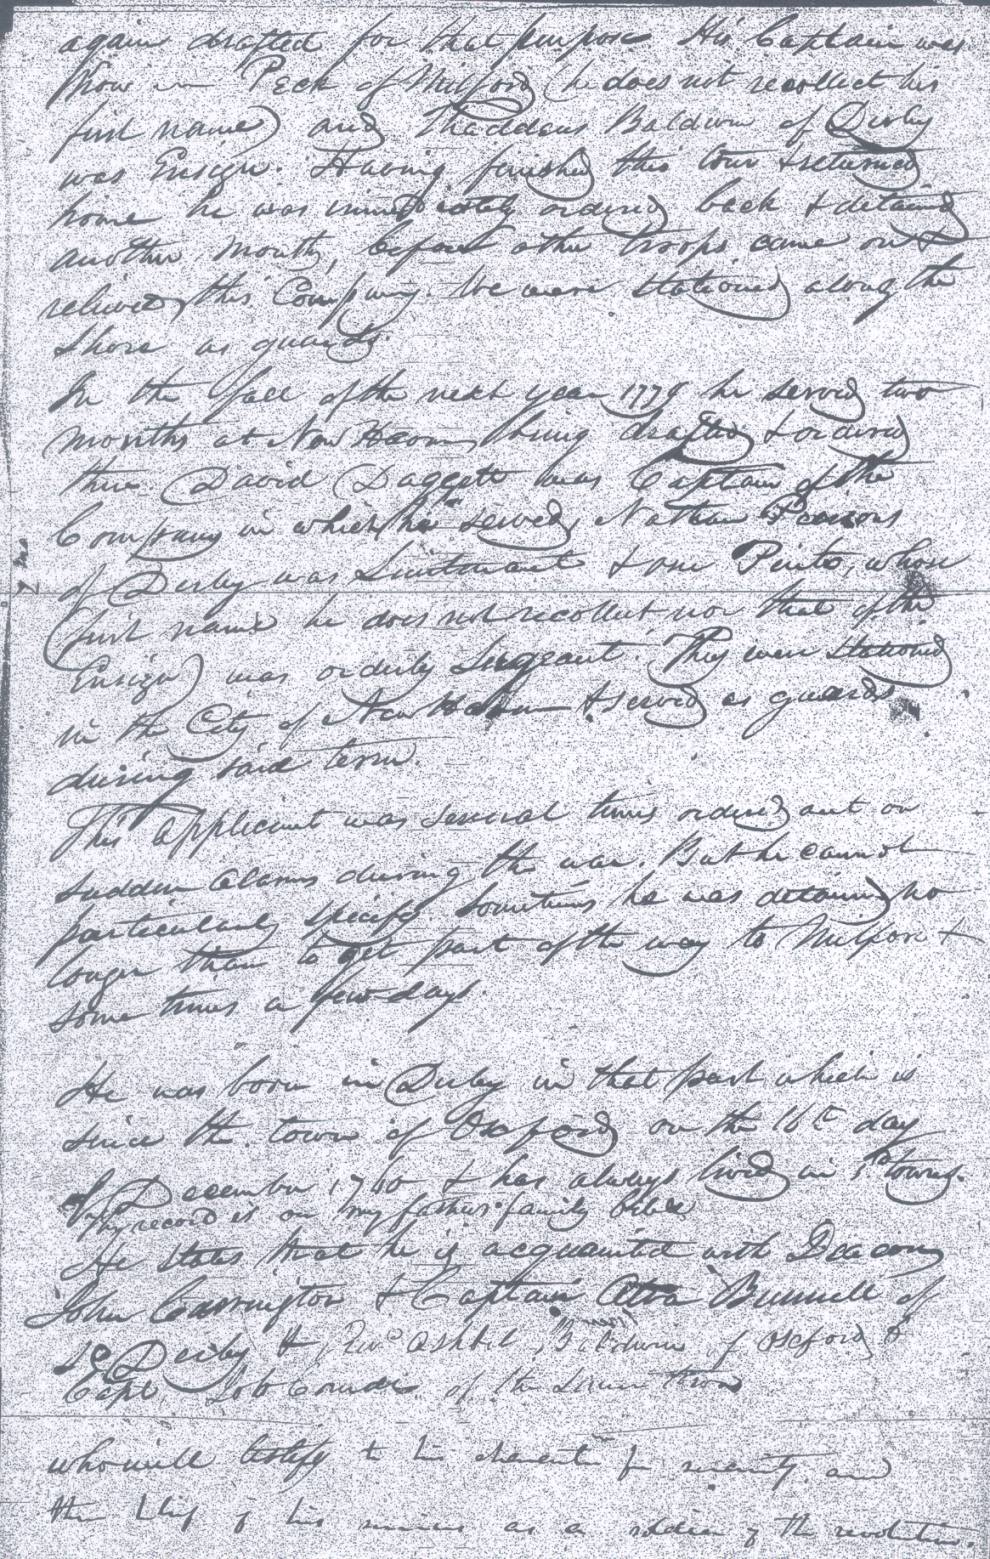 again drafted for that purpose His Captain was
Peck of Milford (he does not recollect his
first name) and Thaddeus Baldwin of Derby
was Ensign. Having finished this tour & returned
home he was immediately ordered back & detained
another month, before other troops came on &
relieved this Company. We were stationed along the
Shore as guards.
In the fall of the next year 1779 he served two
months at New Haven, being drafted & ordered
there. David Daggett was Captain of the
Company in which he served, Nathan Pearsons
of Derby was Lieutenant & one Pinto, whose
(first name he does not recollect nor that of the
Ensign) was orderly Sergeant. They were stationed
in the City of New Haven & served as guards
during said term.
This applicant was several times ordered out on
sudden alarms during the war. But he cannot
particularly specify. Sometimes he was detained no
longer than to get part of the way to Milford &
some times a few days.
He was born in Derby in that part which is
since the town of Oxford on the 16th day
of December 1760 & has always lived in sd towns.
My record is on my father's family bible
He states that he is acquainted with Deacon
John Carrington & Captain Bunnell of
sd Derby & Revd Ashbel Baldwin of Oxford &
Capt of the same town
who will testify to his character for veracity and
the belief of his services as a soldier of the revolution.